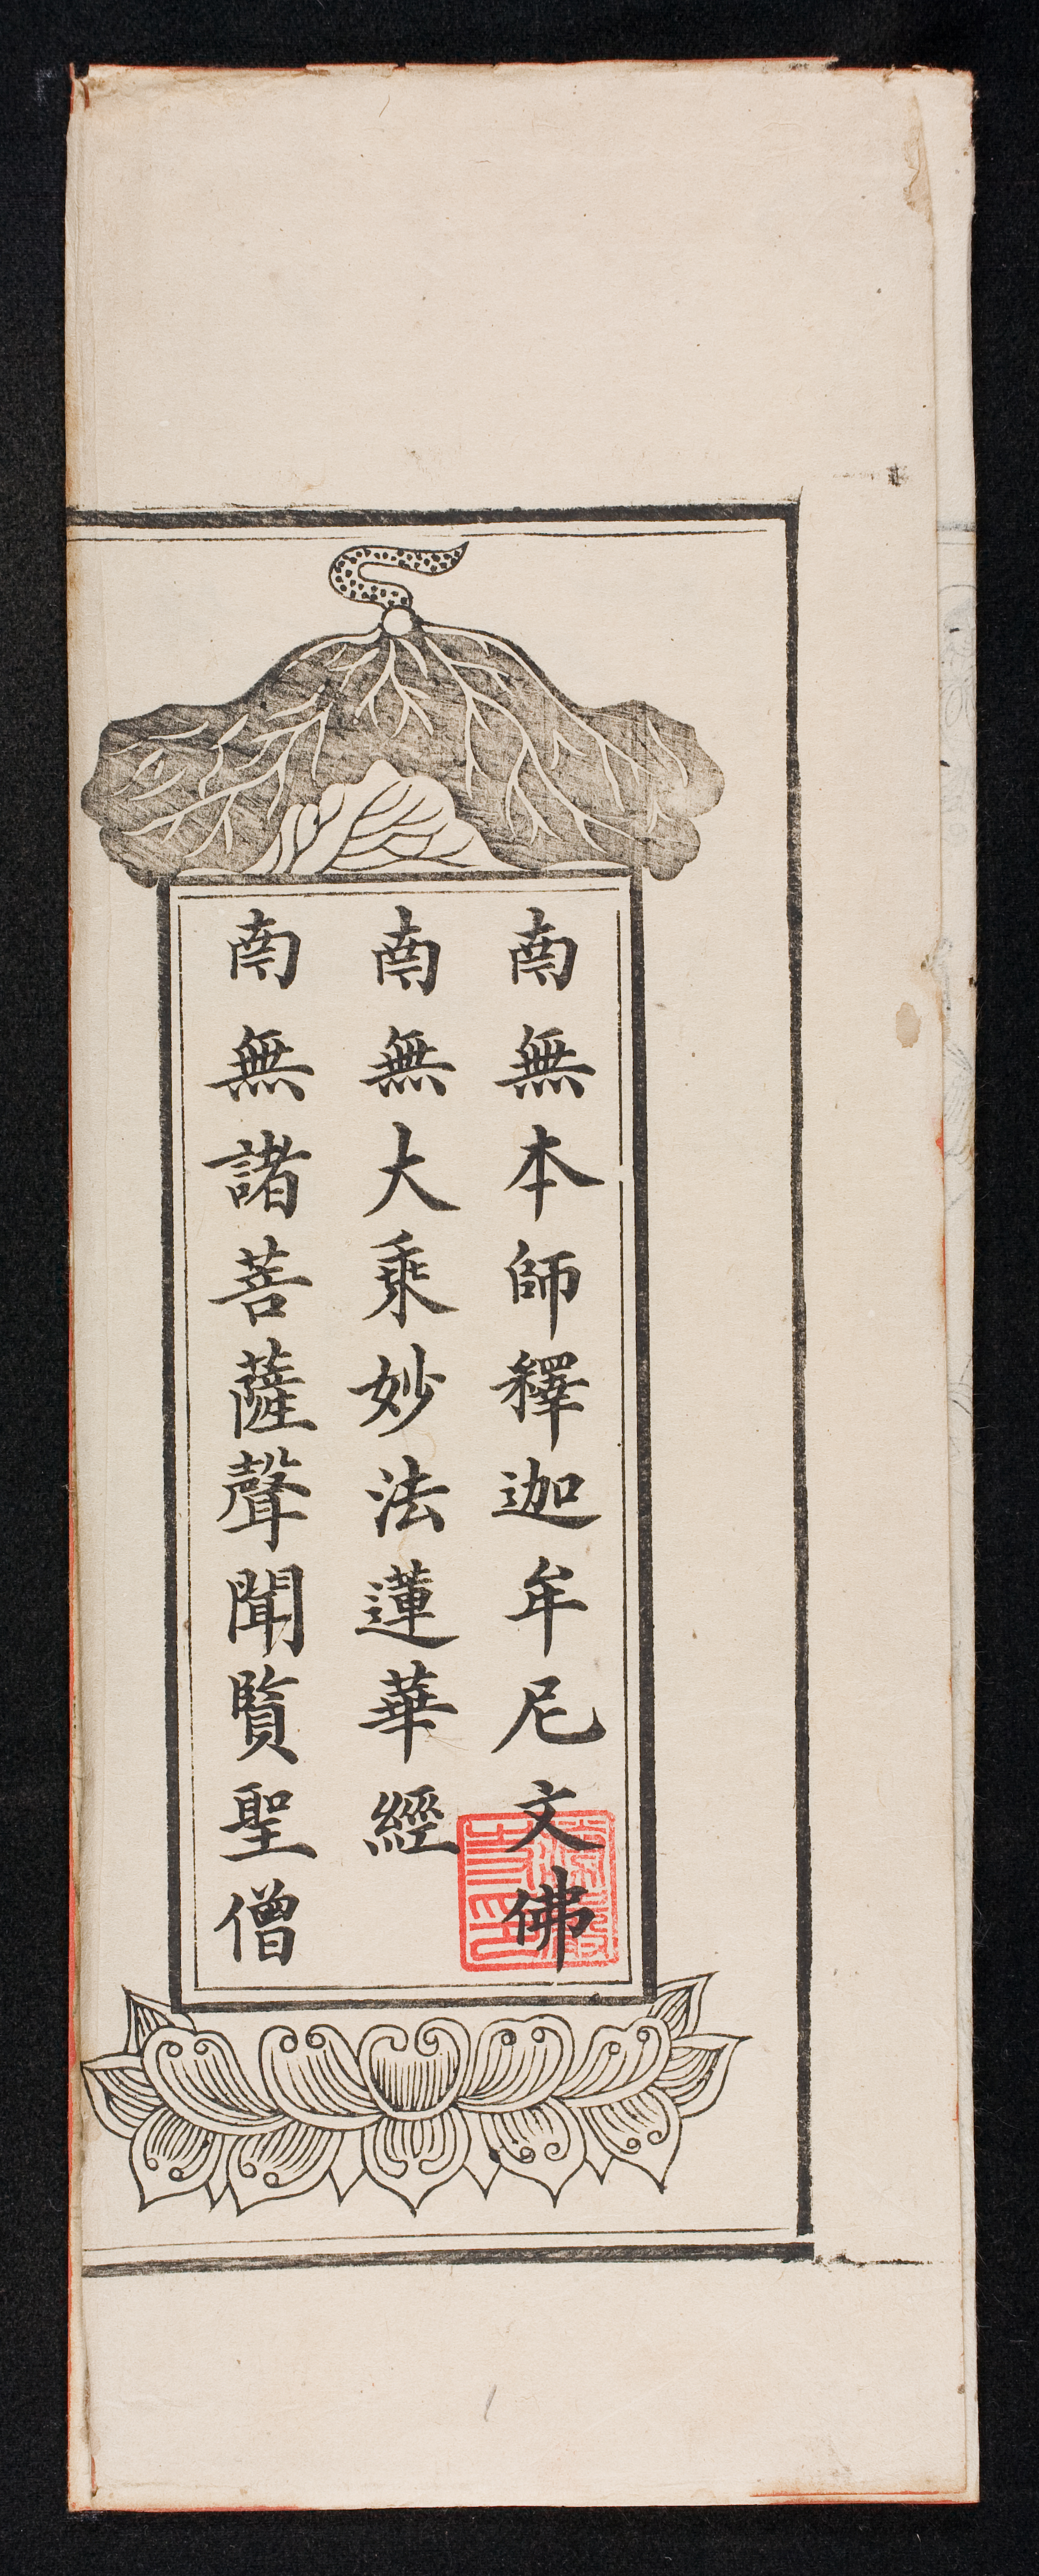 南無本師釋迦牟尼文佛
南無大乘妙法蓮華經
南無諸菩薩聲聞賢聖僧